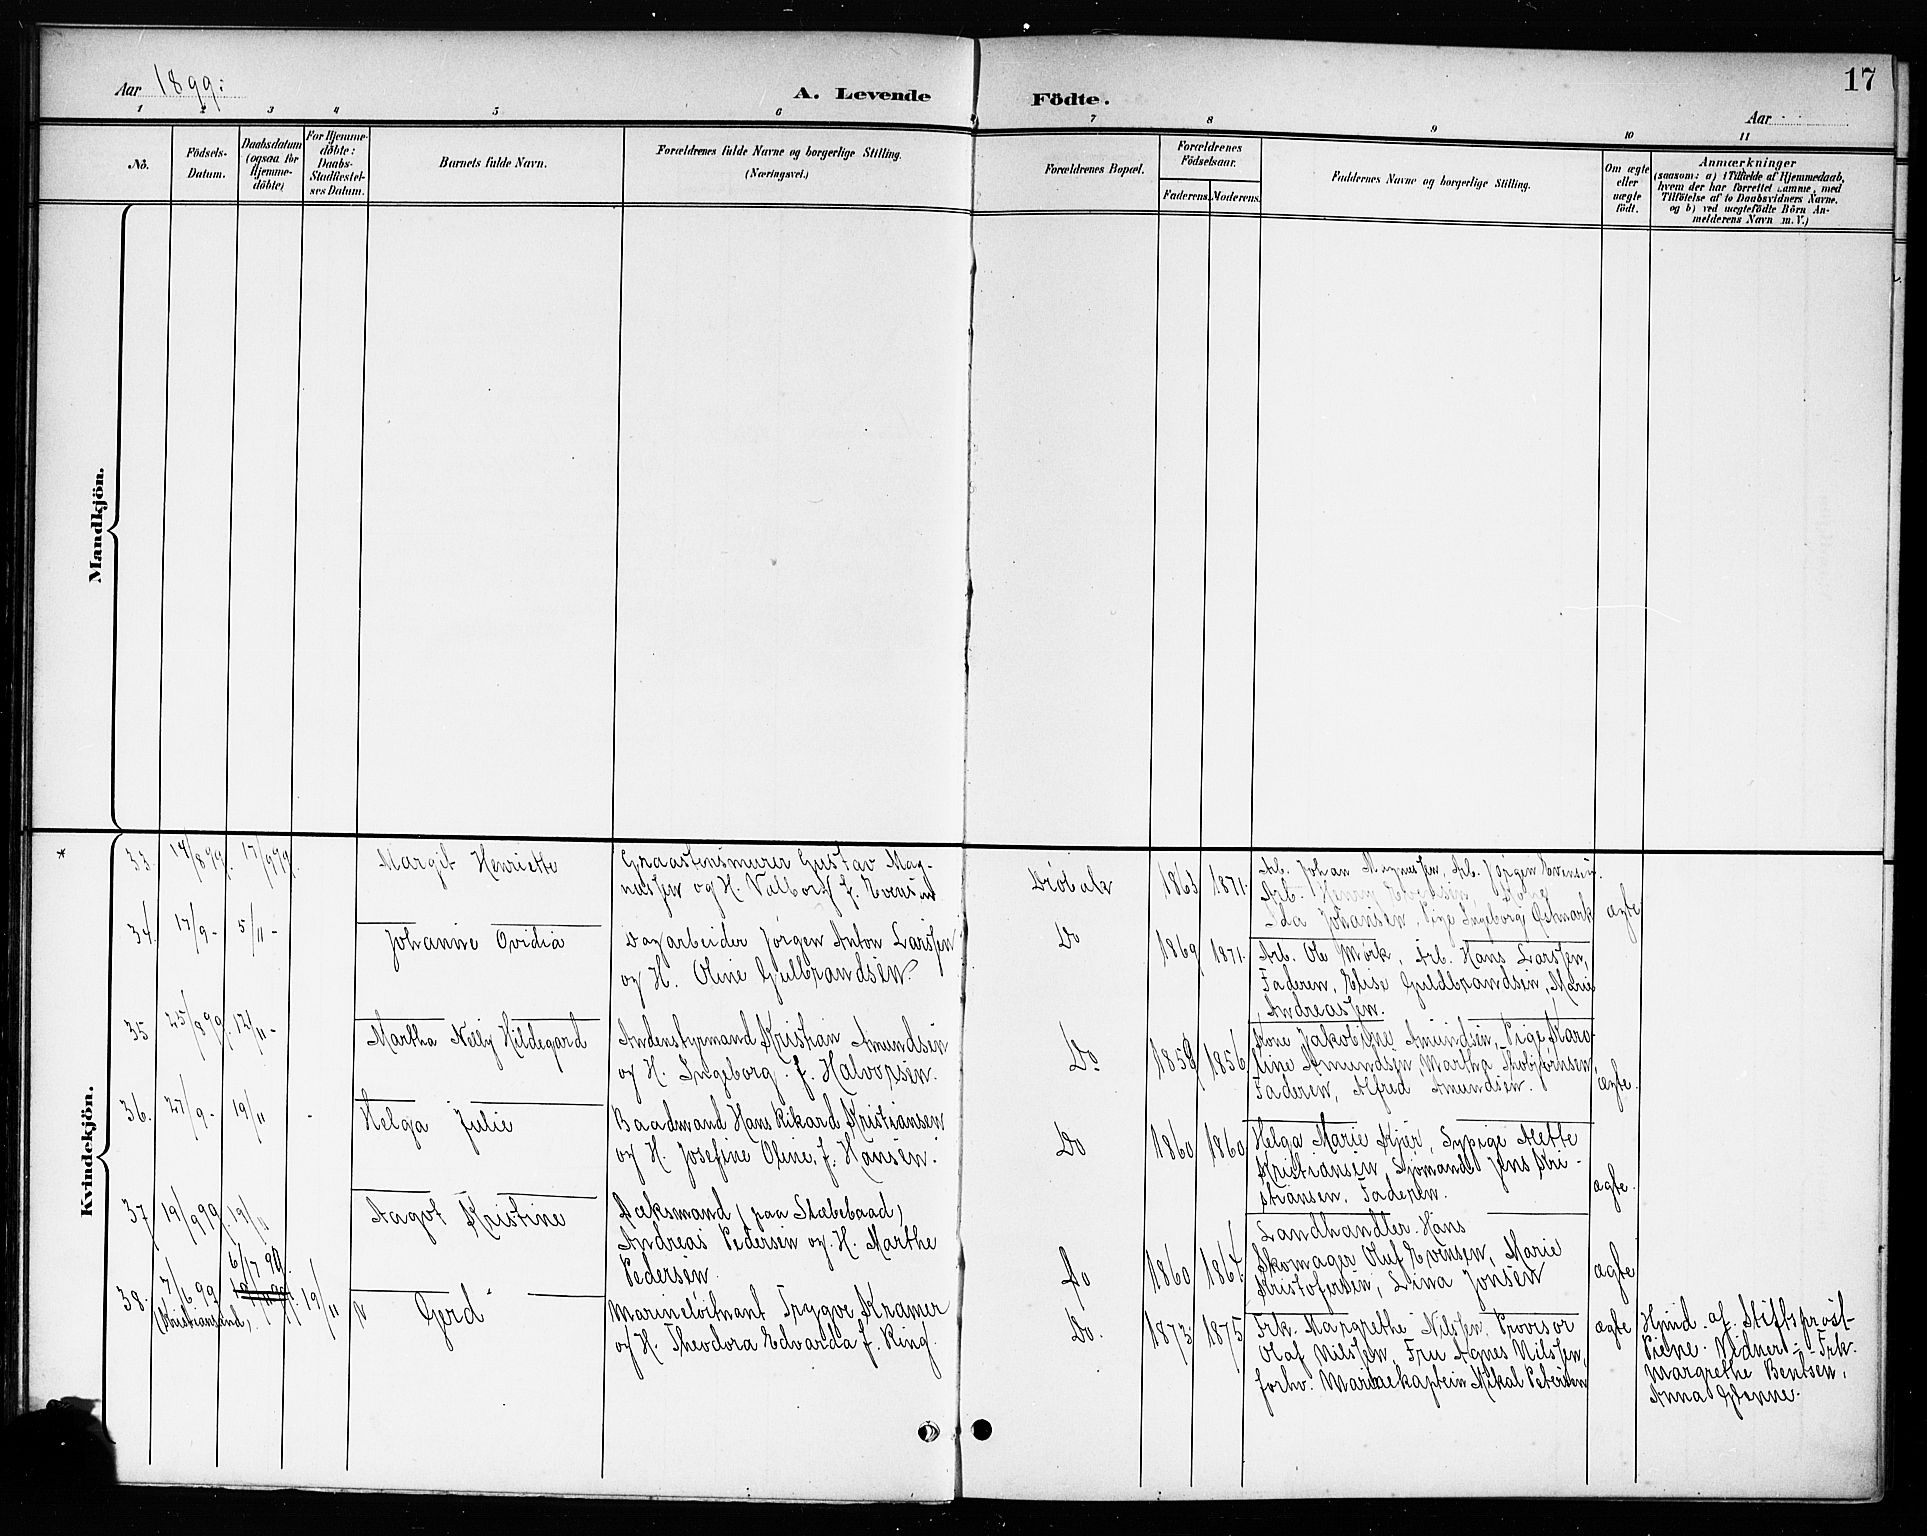 Aar 1899:
A. Levende
Födte.
17
Aar
1 2 3 4 5 6 7 8 9 10 11
No.
Födsels-
Datum.
Daabsdatum
(ogsaa for
Hjemme-
döbte)
For Hjemme-
döbte:
Daabs-
Stadfæstel-
ses Datum.
Barnets fulde Navn.
Forældrenes fulde Navne og borgerlige Stilling.
(Næringsvei.)
Forældrenes Bopæl.
Forældrenes
Födselsaar.
Faderens. Moderens.
Faddernes Navne og borgerlige Stilling.
Om ægte
eller
uægte
födt.
Anmærkninger
(saasom: a) i Tilfælde af Hjemmedaab,
hvem der har forrettet samme, med
Tilföielse af to Daabsvidners Navne,
og b) ved uægtefödte Börn An-
melderens Navn m. V.)
Mandkjön.
Kvindekjön.
*
33. 14/8 99. 17/9 99. Margit Henriette
Graastensmurer Gustav Mag-
nussen og H. Valborg f. Evensen
Dröbak 1863 1871.
Arb. Johan Magnussen, Arb. Jörgen Evensen.
Arb. Henry
Ida Johansen, Pige Ingeborg
ægte
34. 17/9- 5/11- Johanne Ovidia
Dagarbeider Jørgen Anton Larssen
og H. Oline Gulbrandsen
Do 1869 1871.
Arb. Ole Mørk, Arb. Hans Larssen,
Faderen, Elise Guldbrandsen, Marie
Andreassen.
35 25/8 99. 12/11- Martha Nelly Hildegard
Andenstyrmand Kristian Amundsen
og H. Ingeborg f. Halvorsen.
Do 1859 1856
Kone Jakobine Amundsen, Pige Karo-
line Amundsen, Martha Thobjørnsen,
Faderen, Alfred Amundsen.
ægte.
36. 27/9- 19/11 - Helga Julie
Baadsmand Hans Rikard Kristiansen
og H. Josefine Oline, f. Hansen.
Do 1860 1860
Helga Marie Kjær, Sypige Alette
Kristiansen, Sjømand Jens Kri-
stiansen, Faderen.
ægte.
37 19/9 99. 19/11 Aagot Kristine
Dæksmand (paa Slæbebaad)
Andreas Pedersen og H. Marthe
Pedersen.
Do 1860 1864
Landhandler Hans
Skomager Oluf Evensen, Marie
Kristofersen, Lina Jonsen
ægte
38. 7/6 99 6/7 99. 19/11 Gerd
(Kristiansand).
Marineløitnant Trygve Kramer
og H. Theodora Edvarda f. Ring.
Do. 1873 1875
Frk. Margrethe Nilssen, Provisor
Olaf Nilssen, Fru Agnes Nilssen,
forhv. Marinekaptein Mikal Petersen
ægte
Hjmd. af Stiftsprost
Piene. Vidner: Frk.
Margrethe Bentsen,
Anna